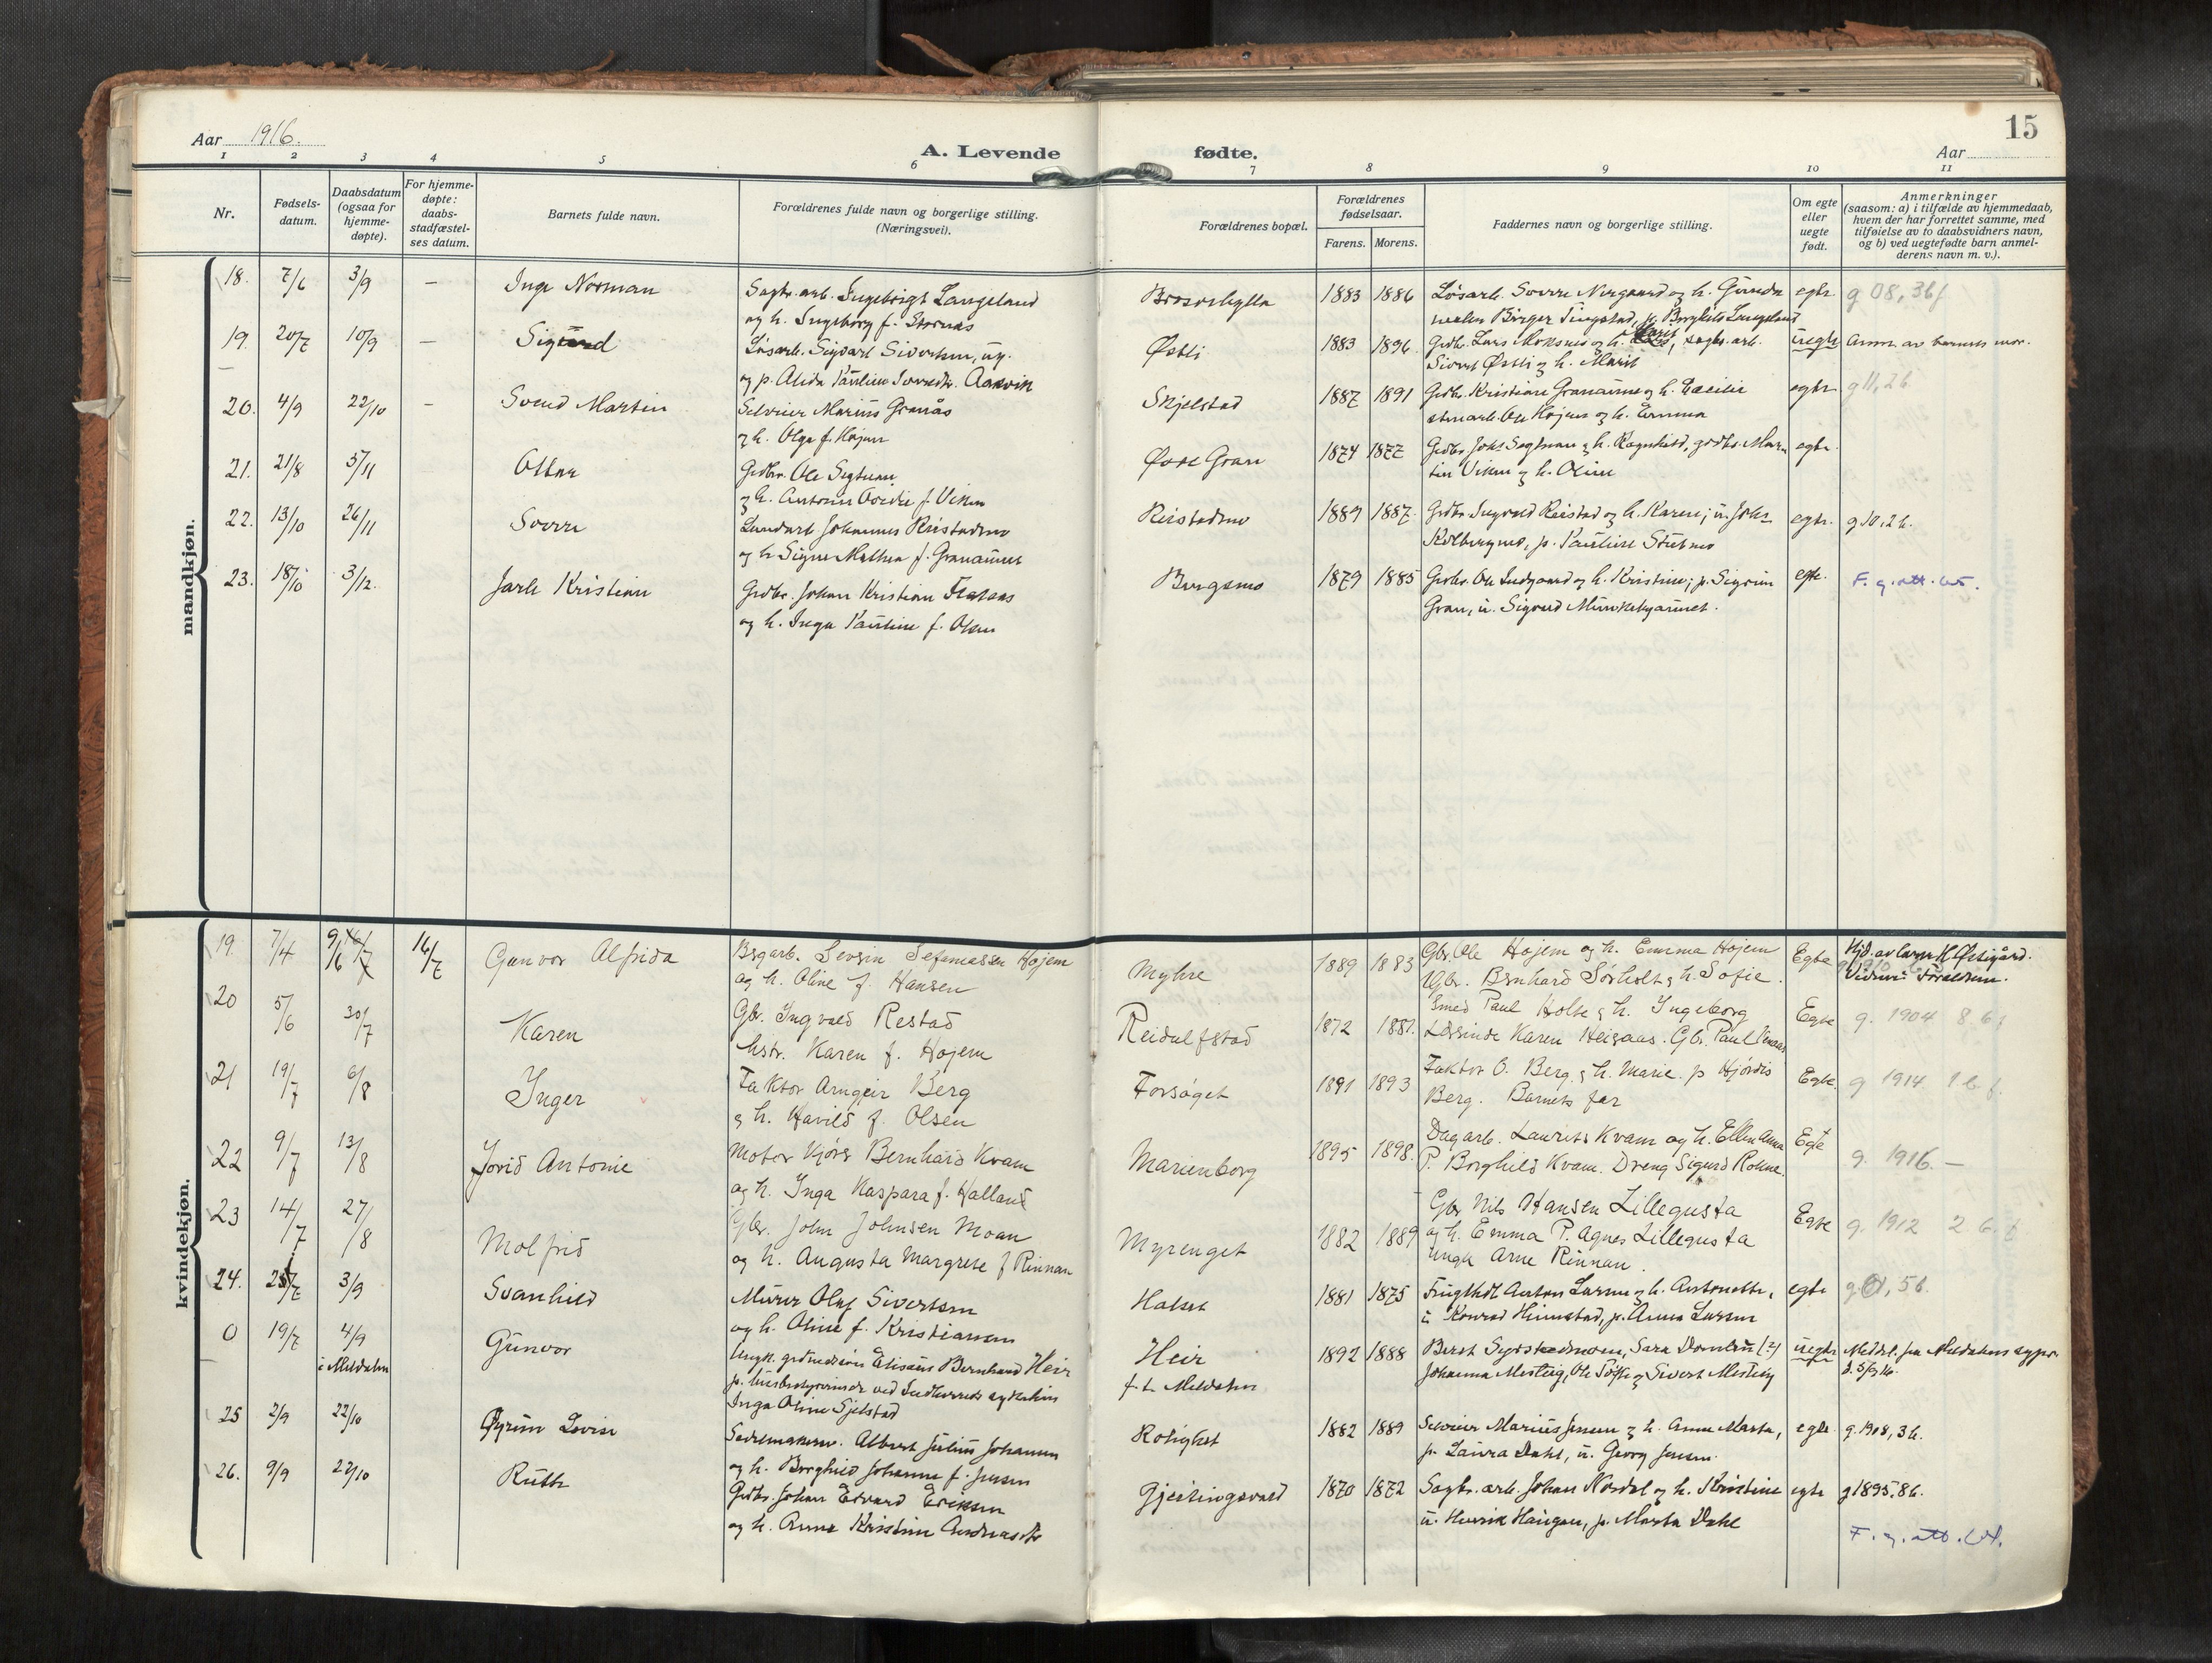 15
Aar 1916.
A. Levende fødte.
Aar
1 2 3 4 5 6 7 8 9 10 11
Nr.
Fødsels-
datum.
Daabsdatum
(ogsaa for
hjemme-
døpte).
For hjemme-
døpte:
daabs-
stadfæstel-
ses datum.
Barnets fulde navn.
Forældrenes fulde navn og borgerlige stilling.
(Næringsvei).
Forældrenes bopæl.
Forældrenes
fødselsaar.
Farens. Morens.
Faddernes navn og borgerlige stilling.
Om egte
eller
uegte
født.
Anmerkninger
(saasom: a) i tilfælde av hjemmedaab,
hvem der har forrettet samme, med
tilføielse av to daabsvidners navn,
og b) ved uegtefødte barn anmel-
derens navn m. v.).
mandkjøn.
18. 7/6 3/9 — Inge Norman
Sagbr. arb. Ingebrigt Langeland
og h. Ingeborg f. Stornes
1883 1886
Løsarb. Sverre Norgaard og h. Gunda
Birger Tingstad, p. Borghild Langeland
egte. g 08, 36f
19. 20/7 10/9 — Sigurd
Løsarb. Sigvart Sivertsen, ug.
og p. Alida Pauline Aasvik
Østli 1883 1896
Grdbr. Lars Moksnes og h. Marit, sagbr. arb.
Sivert Østli og h. Marit
uegte Anm. av barnets mor.
20. 4/9 22/10 — Svend Martin
Selveier Marius Granås
og h. Olga f. Højem
Skjelstad 1887 1891
Grdbr. Kristian Granaune og h. Cecilie
stenarb. Ole Højem og h. Emma
egte. g 11, 2 b
21. 21/8 5/11 Ottar
Grdbr. Ole Segtnan
og h. Antonie f. Viken
Øvre Gran 1874 1877
Grdbr. Johs Segtnan og h. Ragnhild, grdbr. Mar-
tin Viken og h. Oline
egte.
22. 13/10 26/11 Sverre
Landarb. Johannes Reistadmo
og h. Signe Mathea f. Granaunet
Reistadmo 1889 1887.
Grdbr. Ingvald Reistad og h. Karen; u. Johs
p. Pauline
egte. g 10, 2 b.
23. 18/10 3/12. Jarle Kristian
Grdbr. Johan Kristian Flataas
og h. Inga Pauline f. Olsen
Bergsmo 1879 1885
Grdbr. Ole Indgaard og h. Kristine; p. Sigrun
Gran, u. Sigurd Munkebyaunet.
egte. F. g. att. utst.
kvindekjøn.
19. 7/4 9/6 16/7 16/7 Gunvor Alfrida
Bergarb. Sevrin Sefaniassen Højem
og h. Oline f. Hansen
Myhre 1889 1883
Gbr. Ole Hojem og h. Emma Hojem
Gbr. Bernhard Sørholt og h. Sofie.
Egte Hjd. av Østigård.
Vidner: Forældrene.
20 5/6 30/7 Karen
Gbr. Ingvald Restad
hstr. Karen f. Hojem
Reidulfstad 1872 1881.
Smed Paul Holte og h. Ingeborg
Karen Heigaas. Gbr. Paul
Egte g. 1904 8 b f
21 19/7 6/8 Inger
Faktor Arngeir Berg
og h. Havild f. Olsen
Forsøget 1891 1893
Faktor O. Berg og h. Marie. p Hjørdis
Berg. Barnets far
Egte. g 1914 1 b. f.
22 9/7 13/8 Jorid Antonie
Motor kjører Bernhard Kvam
og h. Inga Kaspara f. Halland
Marienborg 1895 1898.
Dagarb. Laurits Kvam og h. Ellen Anna
P. Borghild Kvam. Dreng Sigurd Rohme.
Egte g. 1916. —
23 14/7 27/8 Molfrid
Gbr. John Johnsen Moan
og h. Augusta Margrete f Rinnan
Myrenget 1882 1889
Gbr Nils Hansen Lillegusta
og h. Emma P. Agnes Lillegusta
ungk Arne Rinnan.
Egte g. 1912 2 b. f
24. 25/7 3/9 Svanhild
Murer Olaf Sivertsen
og h. Oline f. Kristiansen
Halset 1881 1875
Anton Larsen og h. Antonette,
u Konrad Himstad, p. Anna Larsen
egte g. 01, 5 b.
0 19/7 4/9 i Meldalen Gunvor
Ungk. Eliseus Bernhard Heir
p. husbestyrerinde ved Indherreds sykehus
Inga Oline Sjelstad
Heir
f. t. Meldalen
1892 1888
Berit Systadmoen, Sara (?)
Johanna Mestlig, Ole og Sivert Mestlig
uegte Meddel. fra Meldalens sogepr.
d. 5/9 16.
25 2/9 22/10 Gyrun Lovise
Sadelmakersv. Albert Julius Johansen
og h. Borghild Johanne f. Jensen
Rolighet 1882 1889
Selveier Marius Jensen og h. Anne Marta,
p. Laura Dahl, u. Georg Jensen.
egte. g. 1908, 3 b.
26. 9/9 22/10 Ruth
Grdbr. Johan Edvard Eriksen
og h. Anne Kristine Andreasdtr
Gjeitingsvold 1870 1872
Sagbr. arb. Johan Nordal og h. Kristine
u. Henrik Haugan, p. Marta Dahl
egte g 1895. 8 b.
F. g. att. utst.